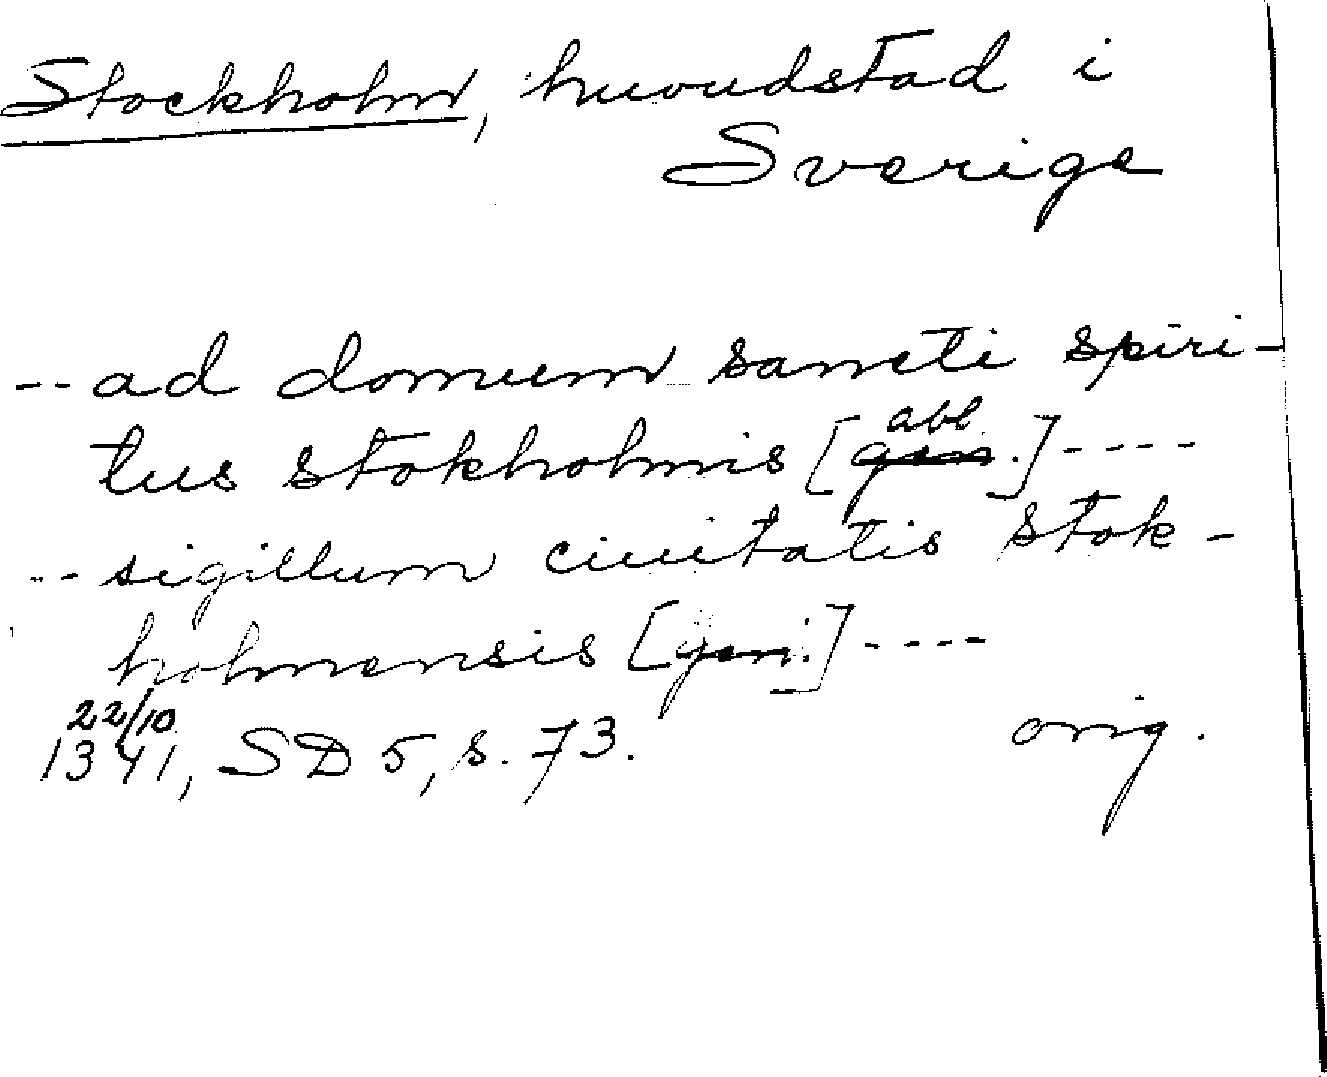 Stockholm, huvudstad i
Sverige
-- ad domum sancti spiri-
tus stokholmis [gen. abl.] ----
-- sigillum ciuitatis stok-
holmensis [gen.] ----
22/10
1341, SD 5, s. 73. orig.